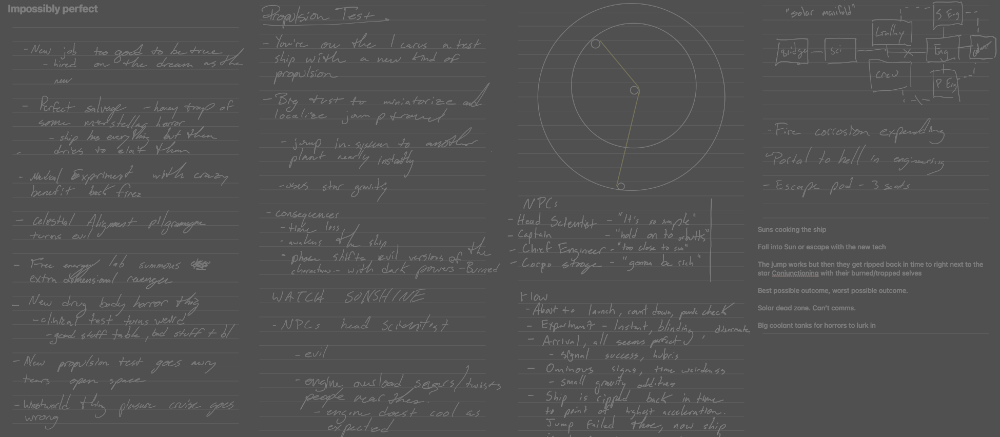 Impossibly perfect
- New job too good to be true
- hired on the dream as the
new
- Perfect salvage - honey trap of
some horror
- ship has everything but then
tries to eat them
- Medical Experiment with crazy
benefit back fires
- Celestial Alignment pilgramage
turns evil
- Free energy lab summons
extra dimensional revenger
- New drug body horror thing
- clinical test turns weird
- good stuff table, bad stuff tbl
- New propulsion test goes awry
tears open space
- Westworld thing pleasure cruise goes
wrong
Propulsion Test
- You're on the Icarus a test
ship with a new kind of
propulsion
- Big test to miniatorize and
localize jump
- jump in-system to another
planet nearly instantly
- uses star gravity
- consequences
- time loss,
- the ship
- phase shifts, evil versions of the
characters - with dark powers - Burned
WATCH SUNSHINE
- NPCs head scientist
- evil
- engine overload severs/twists
people near them
- engine doesnt cool as
expected
NPCs
- Head Scientist - "It's so simple"
- Captain - "hold on to butts"
- Chief Engineer - "too close to sun"
- Corpo stooge - "gonna be rich"
Flow
- About to launch, count down, panic check
- Experiment - Instant, blinding
- Arrival, all seems perfect
- signal success, hubris
- Ominous signs, time weirdness
- small gravity oddities
- Ship is ripped back in time
to point of highest acceleration.
Jump failed then, now ship
"solar manifold"
S Eng
Bridge
Sci
Eng
Crew
P Eng
- Fire corrosion expanding
- Portal to hell in engineering
- Escape pod - 3 seats
Suns cooking the ship
Fall into Sun or escape with the new tech
The jump works but then they get ripped back in time to right next to the
star Conjunctioning with their burned/trapped selves
Best possible outcome, worst possible outcome.
Solar dead zone. Can't comms.
Big coolant tanks for horrors to lurk in